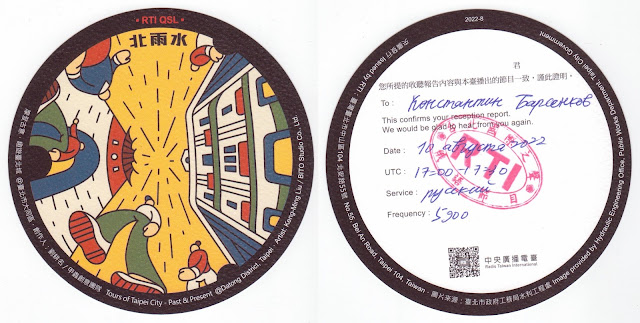 • RTI QSL •
北雨水
@臺北市大同區
Tours of Taipei City - Past & Present @Datong District, Taipei
Artist: Keng-Ming Liu / BITO Studio Co., Ltd.
2022-8
君
您所提的收聽報告內容與本臺播出的節目一致，謹此證明。
To : Константин Барсенков
This confirms your reception report.
We would be glad to hear from you again.
Date : 10 августа 2022
UTC : 17-00 - 17-30
Service : русский
Frequency : 5900
RTI
中央廣播電臺
Radio Taiwan International
Issued by RTI
臺灣臺北市中山區104北安路55號 No.55, Bei An Road, Taipei 104, Taiwan
圖片來源：臺北市政府工務局水利工程處 Image provided by Hydraulic Engineering Office, Public Works Department, Taipei City Government